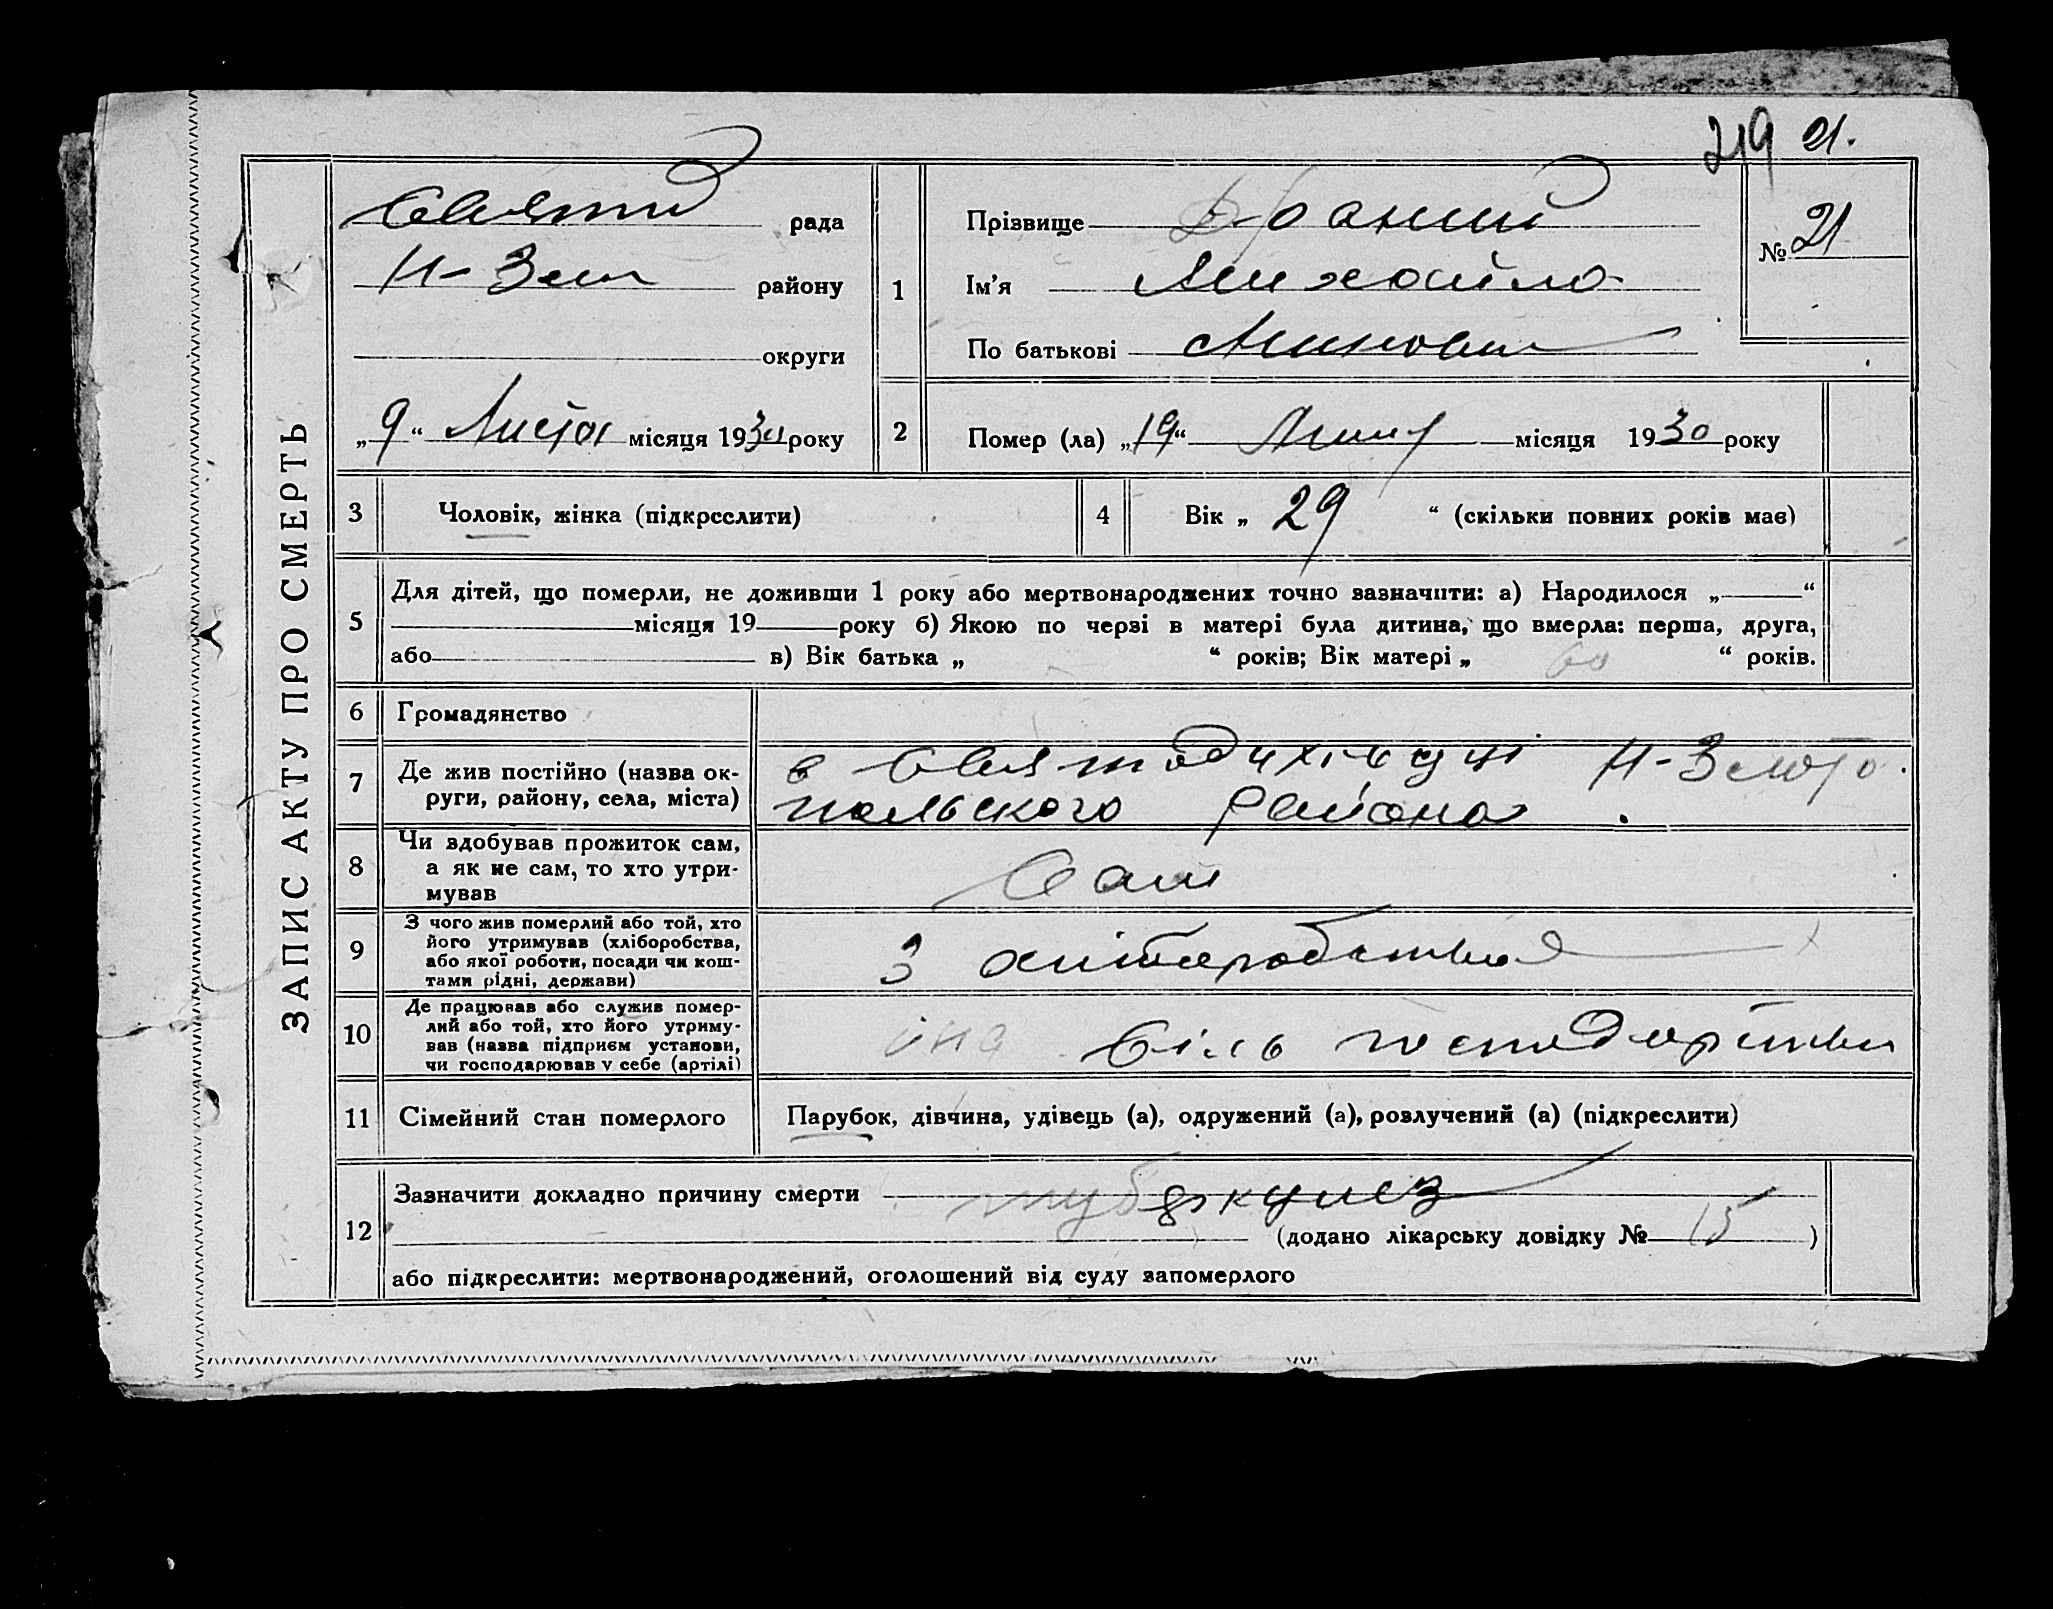 219 21.
ЗАПИС АКТУ ПРО СМЕРТЬ
Святод рада
Н-Злат району
округи
„9“ Листоп місяця 1930 року
1
Прізвище
Ім'я Михайло
По батькові
№ 21
2
Помер (ла) „19“ місяця 1930 року
3 Чоловік, жінка (підкреслити)
4 Вік „ 29 “ (скільки повних років має)
5
Для дітей, що померли, не доживши 1 року або мертвонароджених точно зазначити: а) Народилося „ “
місяця 19 року б) Якою по черзі в матері була дитина, що вмерла: перша, друга,
або в) Вік батька „ “ років; Вік матері „ “ років.
6 Громадянство
7 Де жив постійно (назва ок-
руги, району, села, міста)
в Н-Злато
польского района.
8 Чи здобував прожиток сам,
а як не сам, то хто утри-
мував
Сам
9 З чого жив померлий або той, хто
його утримував (хліборобства,
або якої роботи, посади чи кош-
тами рідні, держави)
З хліборобства
10 Де працював або служив помер-
лий або той, хто його утриму-
вав (назва підприєм установи,
чи господарював у себе (артілі)
Сіль господарстви
11 Сімейний стан померлого
Парубок, дівчина, удівець (а), одружений (а), розлучений (а) (підкреслити)
12
Зазначити докладно причину смерти туберкульоз
(додано лікарську довідку № 15 )
або підкреслити: мертвонароджений, оголошений від суду запомерлого